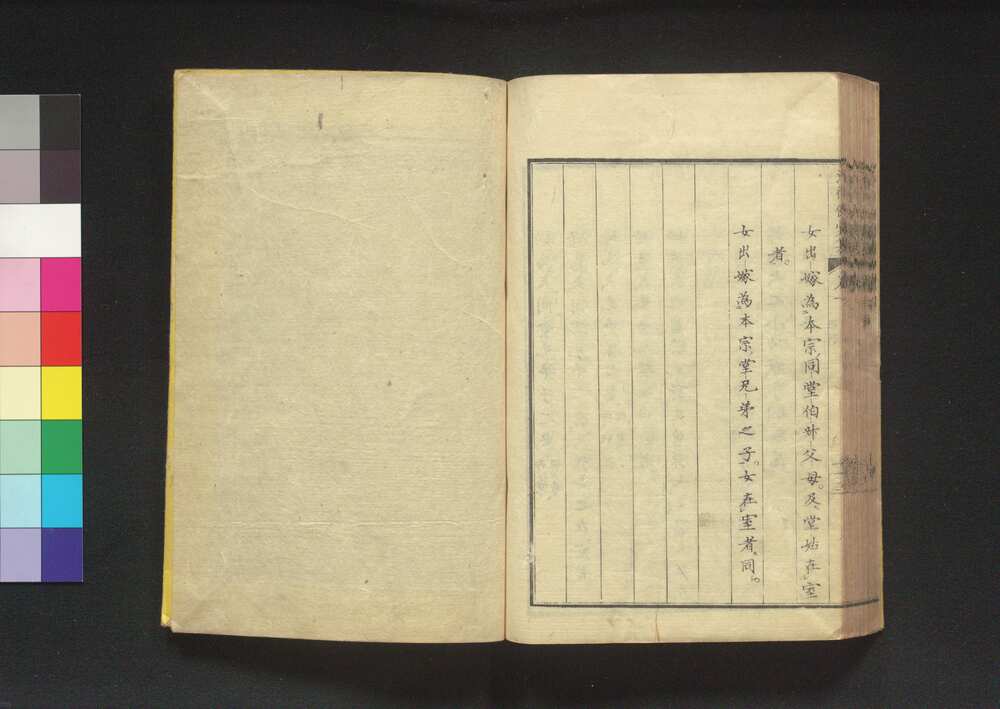 女出嫁為本宗同堂伯叔父母及堂姑在室
者。
女出嫁為本宗堂兄弟之子。女在室者同。